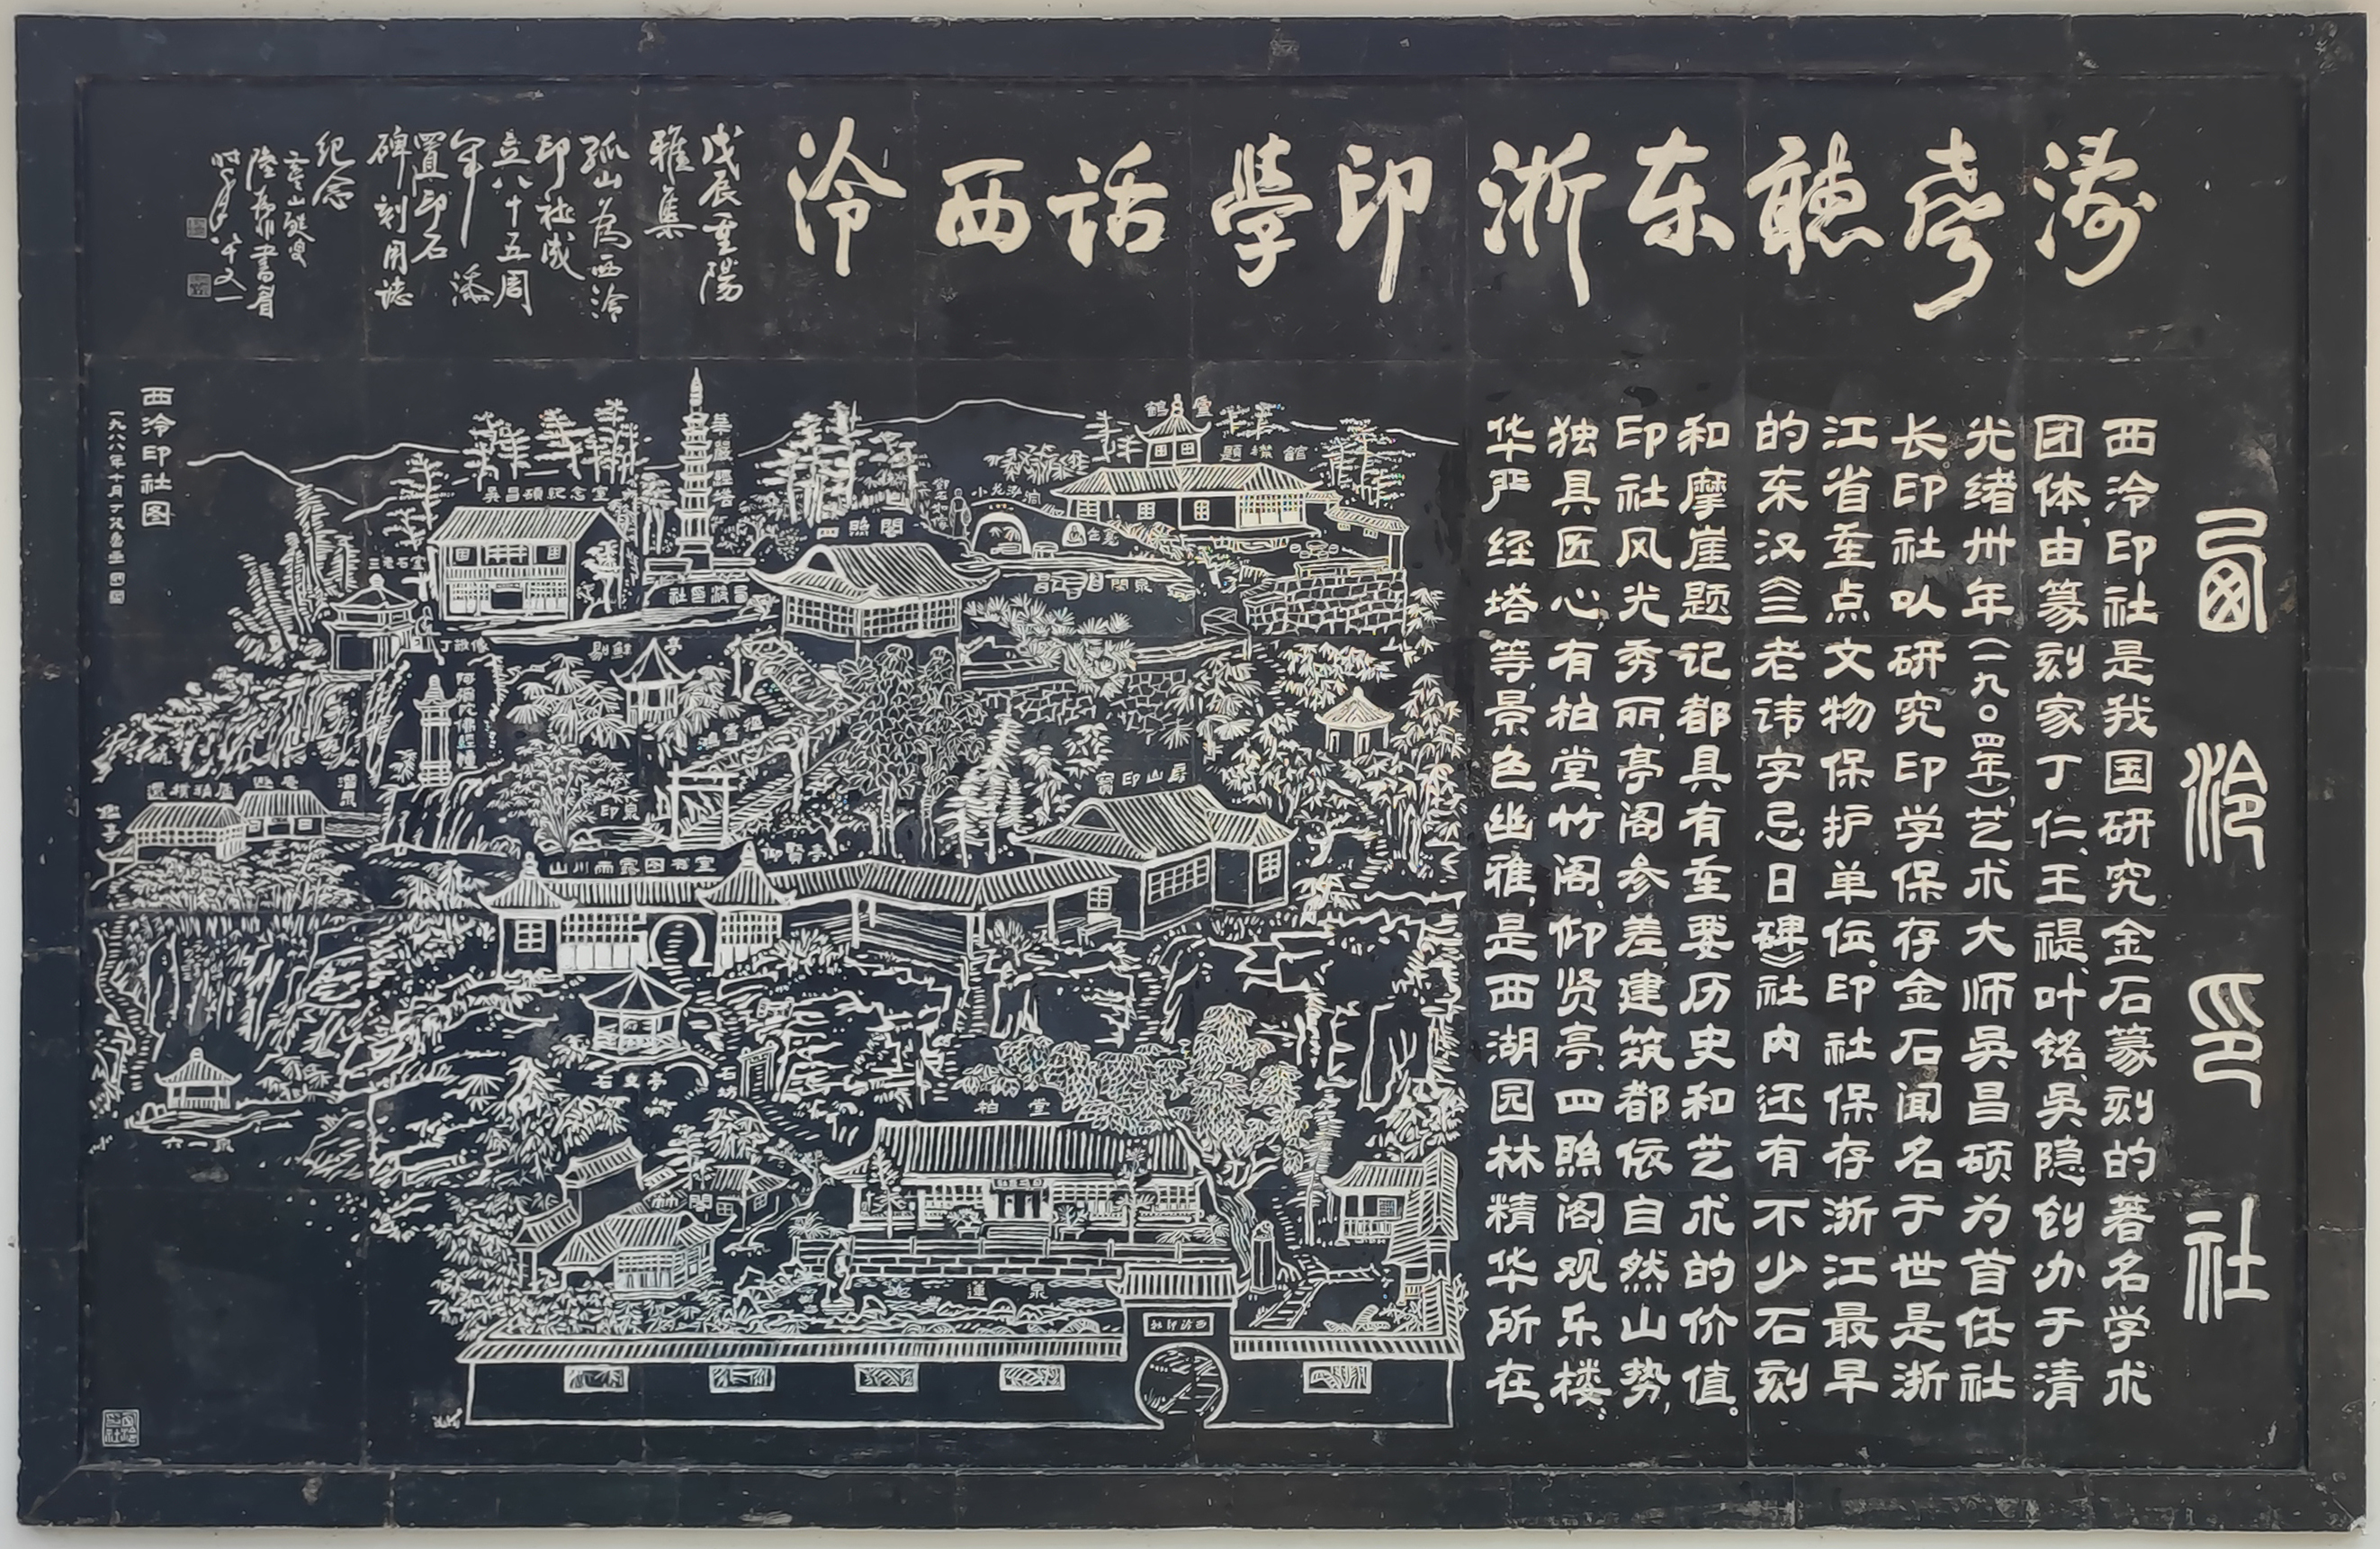 涛声听东浙印学话西泠
戊辰重阳
雅集
孤山为西泠
印社成
立八十五周
年
置印石
碑刻用志
纪念
西泠印社
西泠印社是我国研究金石篆刻的著名学术
团体,由篆刻家丁仁、王禔、叶铭、吴隐创办于清
光绪卅年(一九〇四年)艺术大师吴昌硕为首任社
长印社以研究印学,保存金石闻名于世是浙
江省重点文物保护单位。印社保存浙江最早
的东汉《三老讳字忌日碑》社内还有不少石刻
和摩崖题记都具有重要历史和艺术的价值。
印社风光秀丽,亭阁参差,建筑都依自然山势,
独具匠心,有柏堂、竹阁、仰贤亭、四照阁、观乐楼、
华严经塔等景色幽雅,是西湖园林精华所在。
西泠印社图
吳昌碩紀念室
華嚴經塔
四照閣
小龙泓洞
題襟館
鶴廬
三老石室
剔蘚亭
阿彌陀佛經幢
印泉
潛泉
還樸精廬
山川雨露图書室
仰賢亭
寶印山房
石交亭
石坊
六一泉
柏堂
竹閣
蓮泉
西泠印社